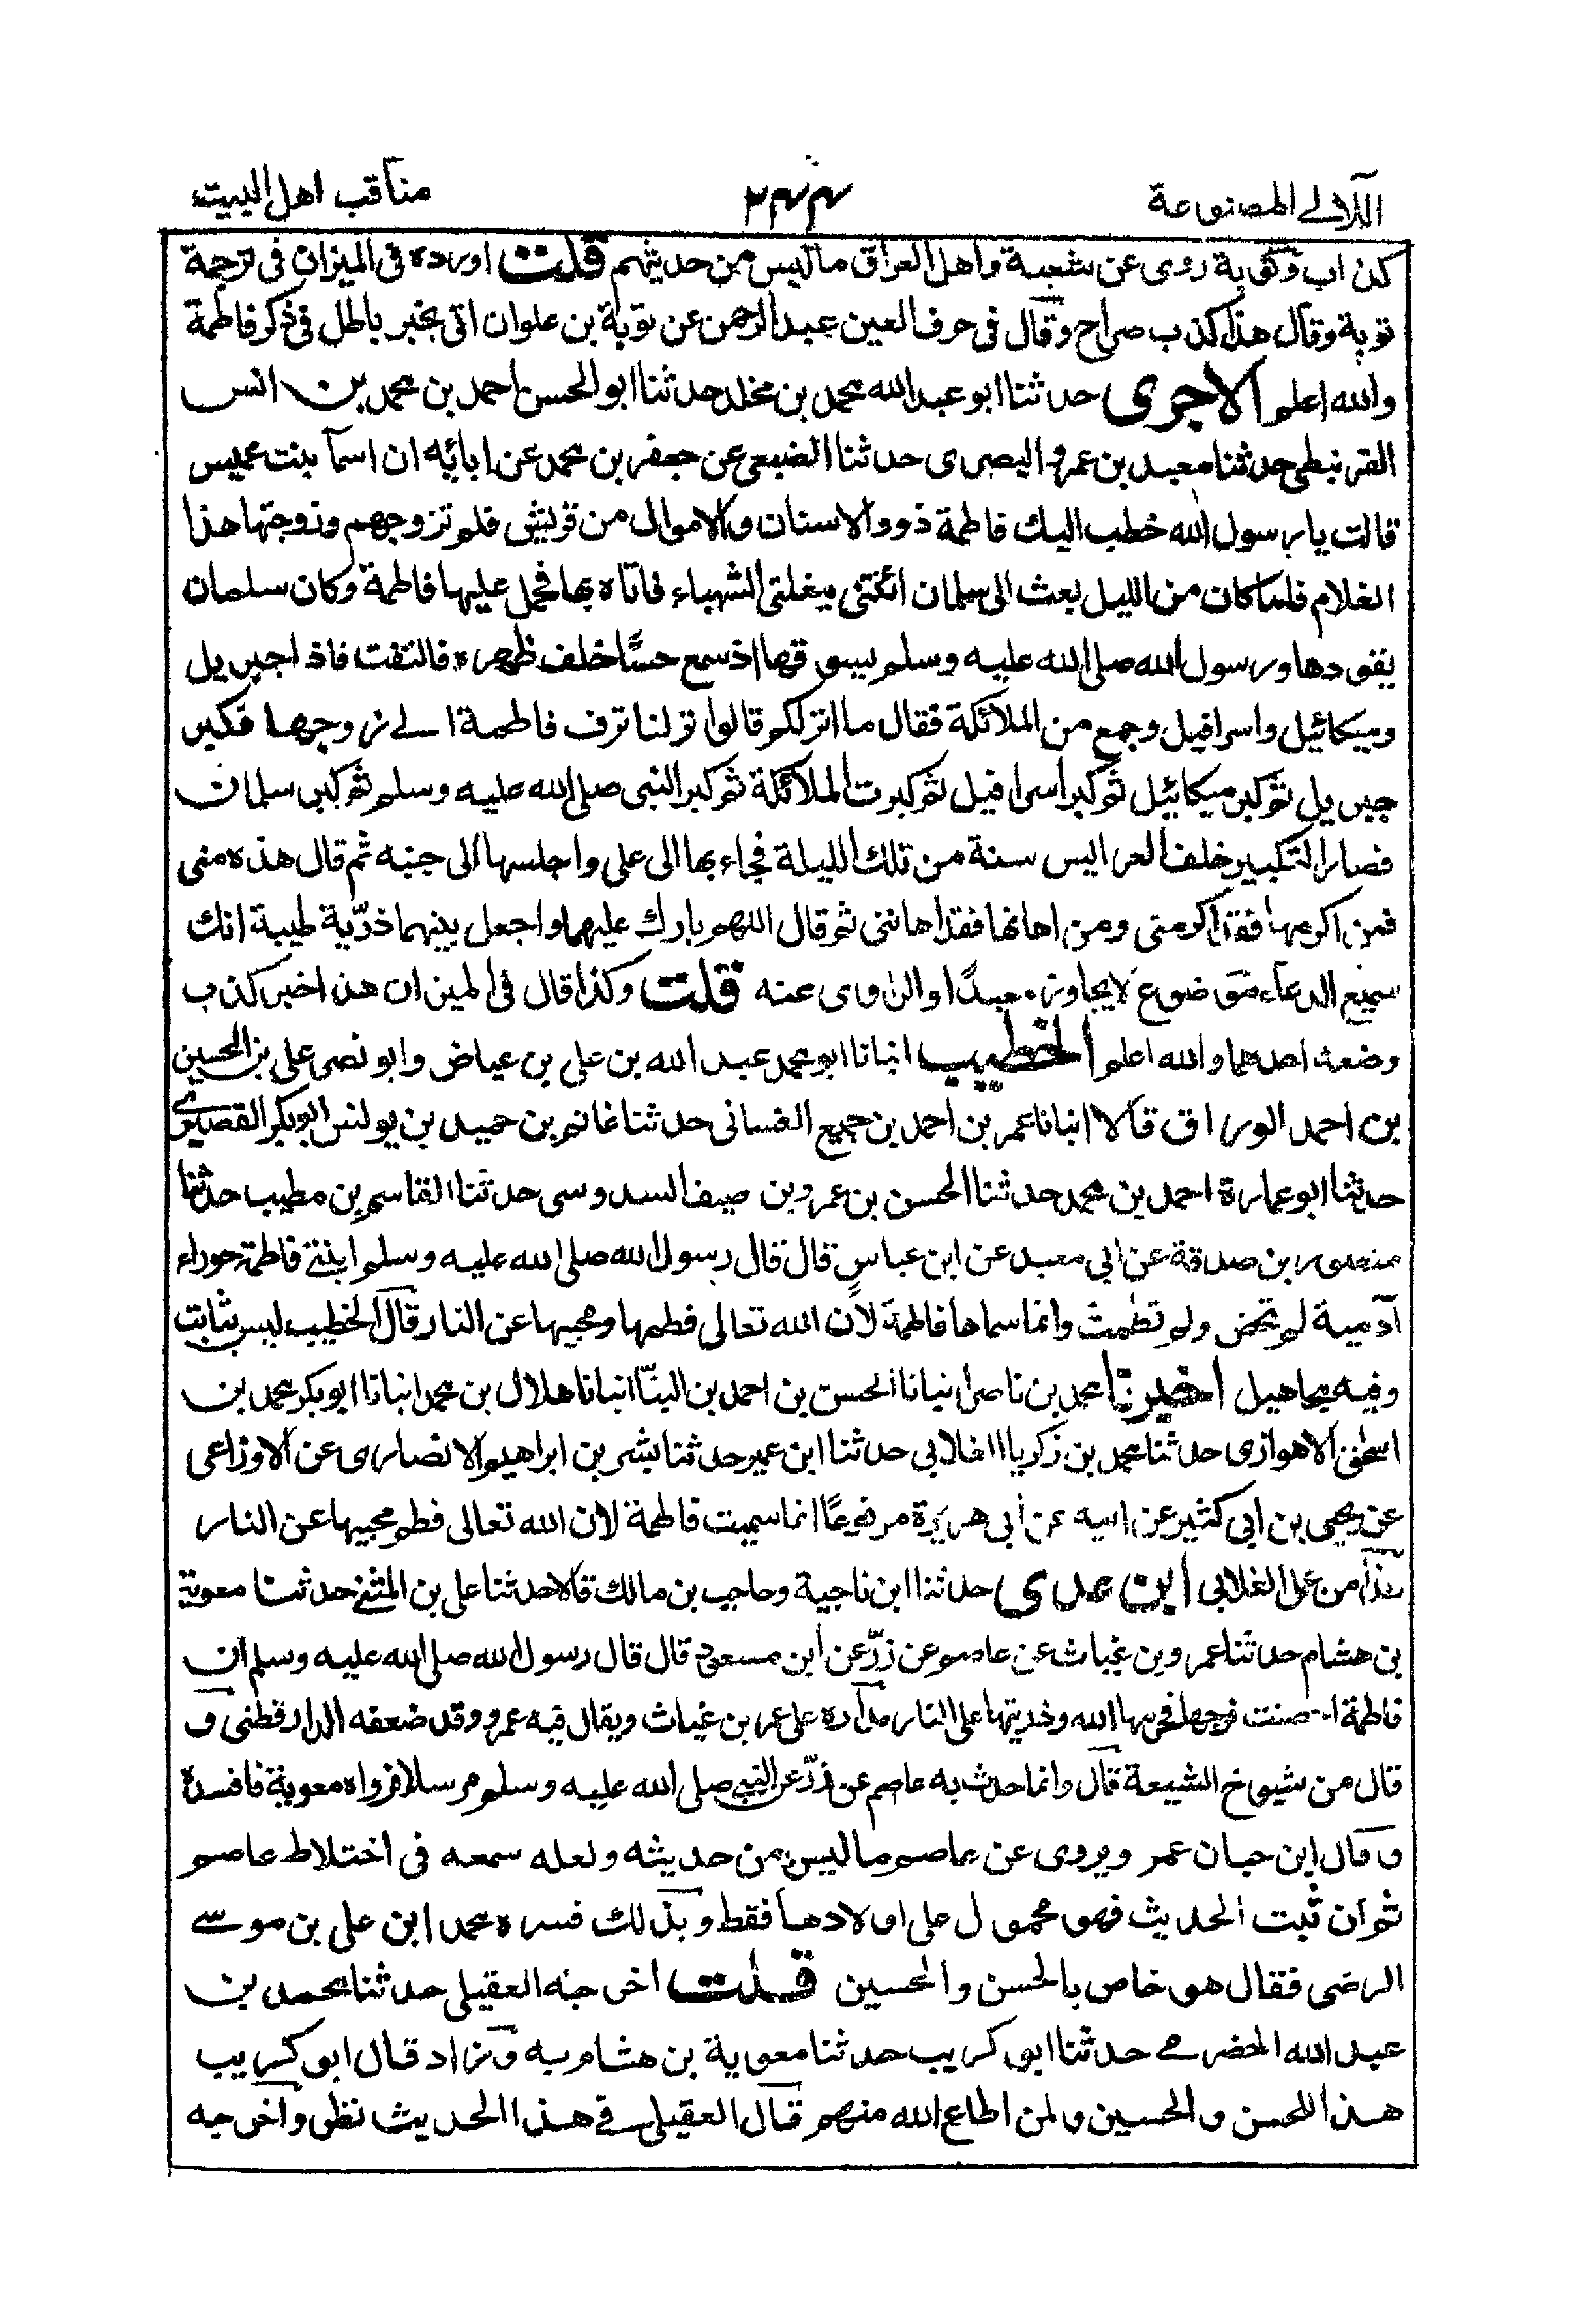 اللآلي المصنوعة
٢٤٤
مناقب اهل البيت
كذاب وتوبة روى عن شعبة واهل العراق ما ليس من حديثهم قلت اورده في الميزان في ترجمة
توبة وقال هذا كذب صراح وقال في حرف العين عبد الرحمن عن توبة بن علوان اتى بخبر باطل في ذكر فاطمة
والله اعلم الاجرى حدثنا ابو عبد الله محمد بن مخلد حدثنا ابو الحسن احمد بن محمد بن انس
القرنبطى حدثنا معبد بن عمرو البصرى حدثنا الضبعى عن جعفر بن محمد عن ابائه ان اسمآ بنت عميس
قالت يا رسول الله خطب اليك فاطمة ذوو الاسنان والاموال من قريش فلم تزوجهم وزوجتها هذا
الغلام فلما كان من الليل بعث الى سلمان ائتنى ببغلتى الشهباء فاتاه بها فحمل عليها فاطمة وكان سلمان
يقودها ورسول الله صلى الله عليه وسلم يسوقها اذ سمع حسًا خلف ظهره فالتفت فاذا جبريل
وميكائيل واسرافيل وجمع من الملائكة فقال ما انزلكم قالوا نزلنا نزف فاطمة الے زوجها فكبر
جبريل ثم كبر ميكائيل ثم كبر اسرافيل ثم كبرت الملآئكة ثم كبر النبى صلى الله عليه وسلم ثم كبر سلمان
فصار التكبير خلف العرايس سنة من تلك الليلة فجاء بها الى على واجلسها الى جنبه ثم قال هذه منى
فمن اكرمها فقد اكرمنى ومن اهانها فقد اهاننى ثم قال اللهم بارك عليهما واجعل بينهما ذرّية طيبة انك
سميع الدعاء موضوع لا يجاوز معبدًا والراوى عنه قلت وكذا قال فى الميزان هذا خبر كذب
وضعه احدهما والله اعلم الخطيب انبانا ابو محمد عبد الله بن على بن عياض وابو نصر على بن الحسين
بن احمد الوراق قالا انبانا عمر بن احمد بن جميع الغسانى حدثنا غانم بن حميد بن يونس ابو بكر القصيرى
حدثنا ابو عمارة احمد بن محمد حدثنا الحسن بن عمرو بن صيف السدوسى حدثنا القاسم بن مطيب حدثنا
منصور بن صدقة عن ابي معبد عن ابن عباس قال قال رسول الله صلى الله عليه وسلم ابنتے فاطمة حوراء
آدمية لم تحض ولم تطمث وانما سماها فاطمة لان الله تعالى فطمها ومحبيها عن النار قال الخطيب ليس بثابت
وفيه مجاهيل اخبرنا محمد بن ناصر انبانا الحسن بن احمد بن البنّا انبانا هلال بن محمد انبانا ابو بكر محمد بن
اسحٰق الاهوازى حدثنا محمد بن زكريا االغلابي حدثنا ابن عمير حدثنا بشر بن ابراهيم الانصارى عن الاوزاعى
عن يحيى بن ابي كثير عن ابيه عن أبى هريرة مرفوعًا انما سميت فاطمة لان الله تعالى فطم محبيها عن النار
هذا من عمل الغلابى ابن عدى حدثنا ابن ناجية وحاجب بن مالك قالا حدثنا على بن المثنے حدثنا معوية
بن هشام حدثنا عمرو بن غياث عن عاصم عن زرّ عن ابن مسعود قال قال رسول الله صلى الله عليه وسلم ان
فاطمة احصنت فرجها فحرمها الله وذريتها على النار مداره على عمر بن غياث ويقال فيه عمرو وقد ضعفه الدارقطنى و
قال من شيوخ الشيعة قال وانما حدث به عاصم عن زرّ عن النبي صلى الله عليه وسلم مرسلا فرواه معوية فافسده
وقال ابن حبان عمر ويروى عن عاصم ما ليس من حديثه ولعله سمعه فى اختلاط عاصم
ثم ان ثبت الحديث فهو محمول على اولادها فقط وبذلك فسره محمد ابن على بن موسے
الرضى فقال هو خاص بالحسن والحسين قلت اخرجه العقيلى حدثنا محمد بن
عبد الله الحضرمے حدثنا ابو كريب حدثنا معوية بن هشام به وزاد قال ابو كريب
هذا للحسن والحسين ولمن اطاع الله منهم قال العقيلى فے هذا الحديث نظر واخرجه